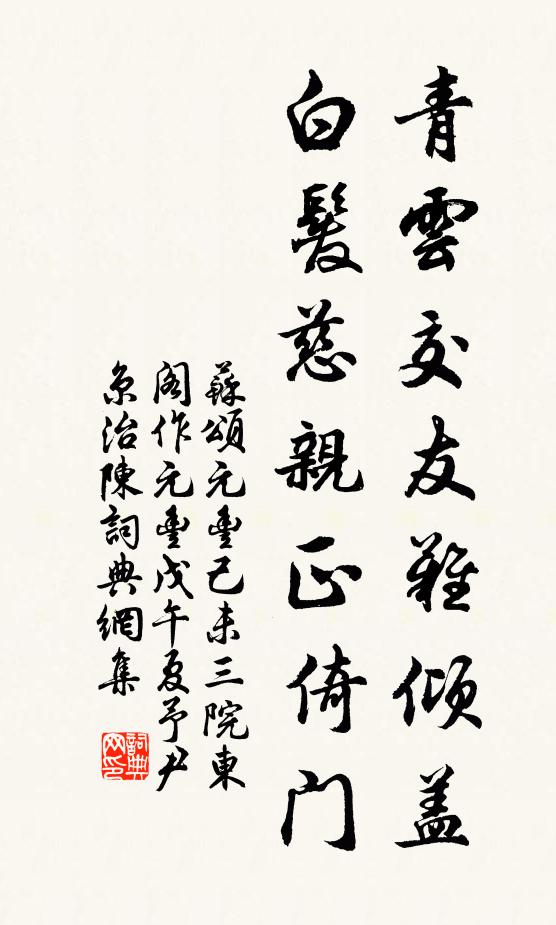 青雲交友難傾盖
白髮慈親正倚門
蘇頌元豊己未三院東
閣作元豊戊午夏予尹
京治陳詞典網集
詞典網印